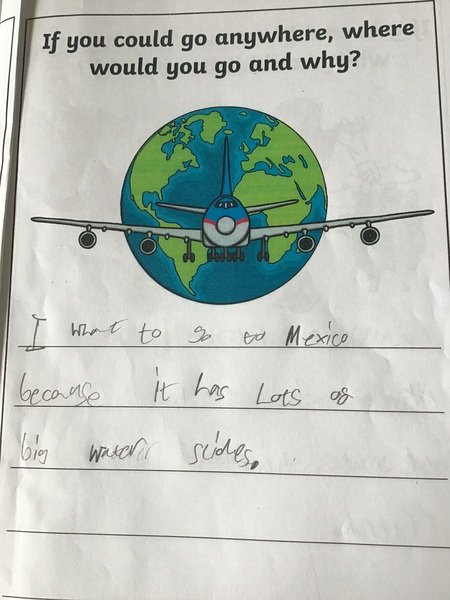 If you could go anywhere, where
would you go and why?
I what to go to Mexico
because it has Lots of
big water slides.